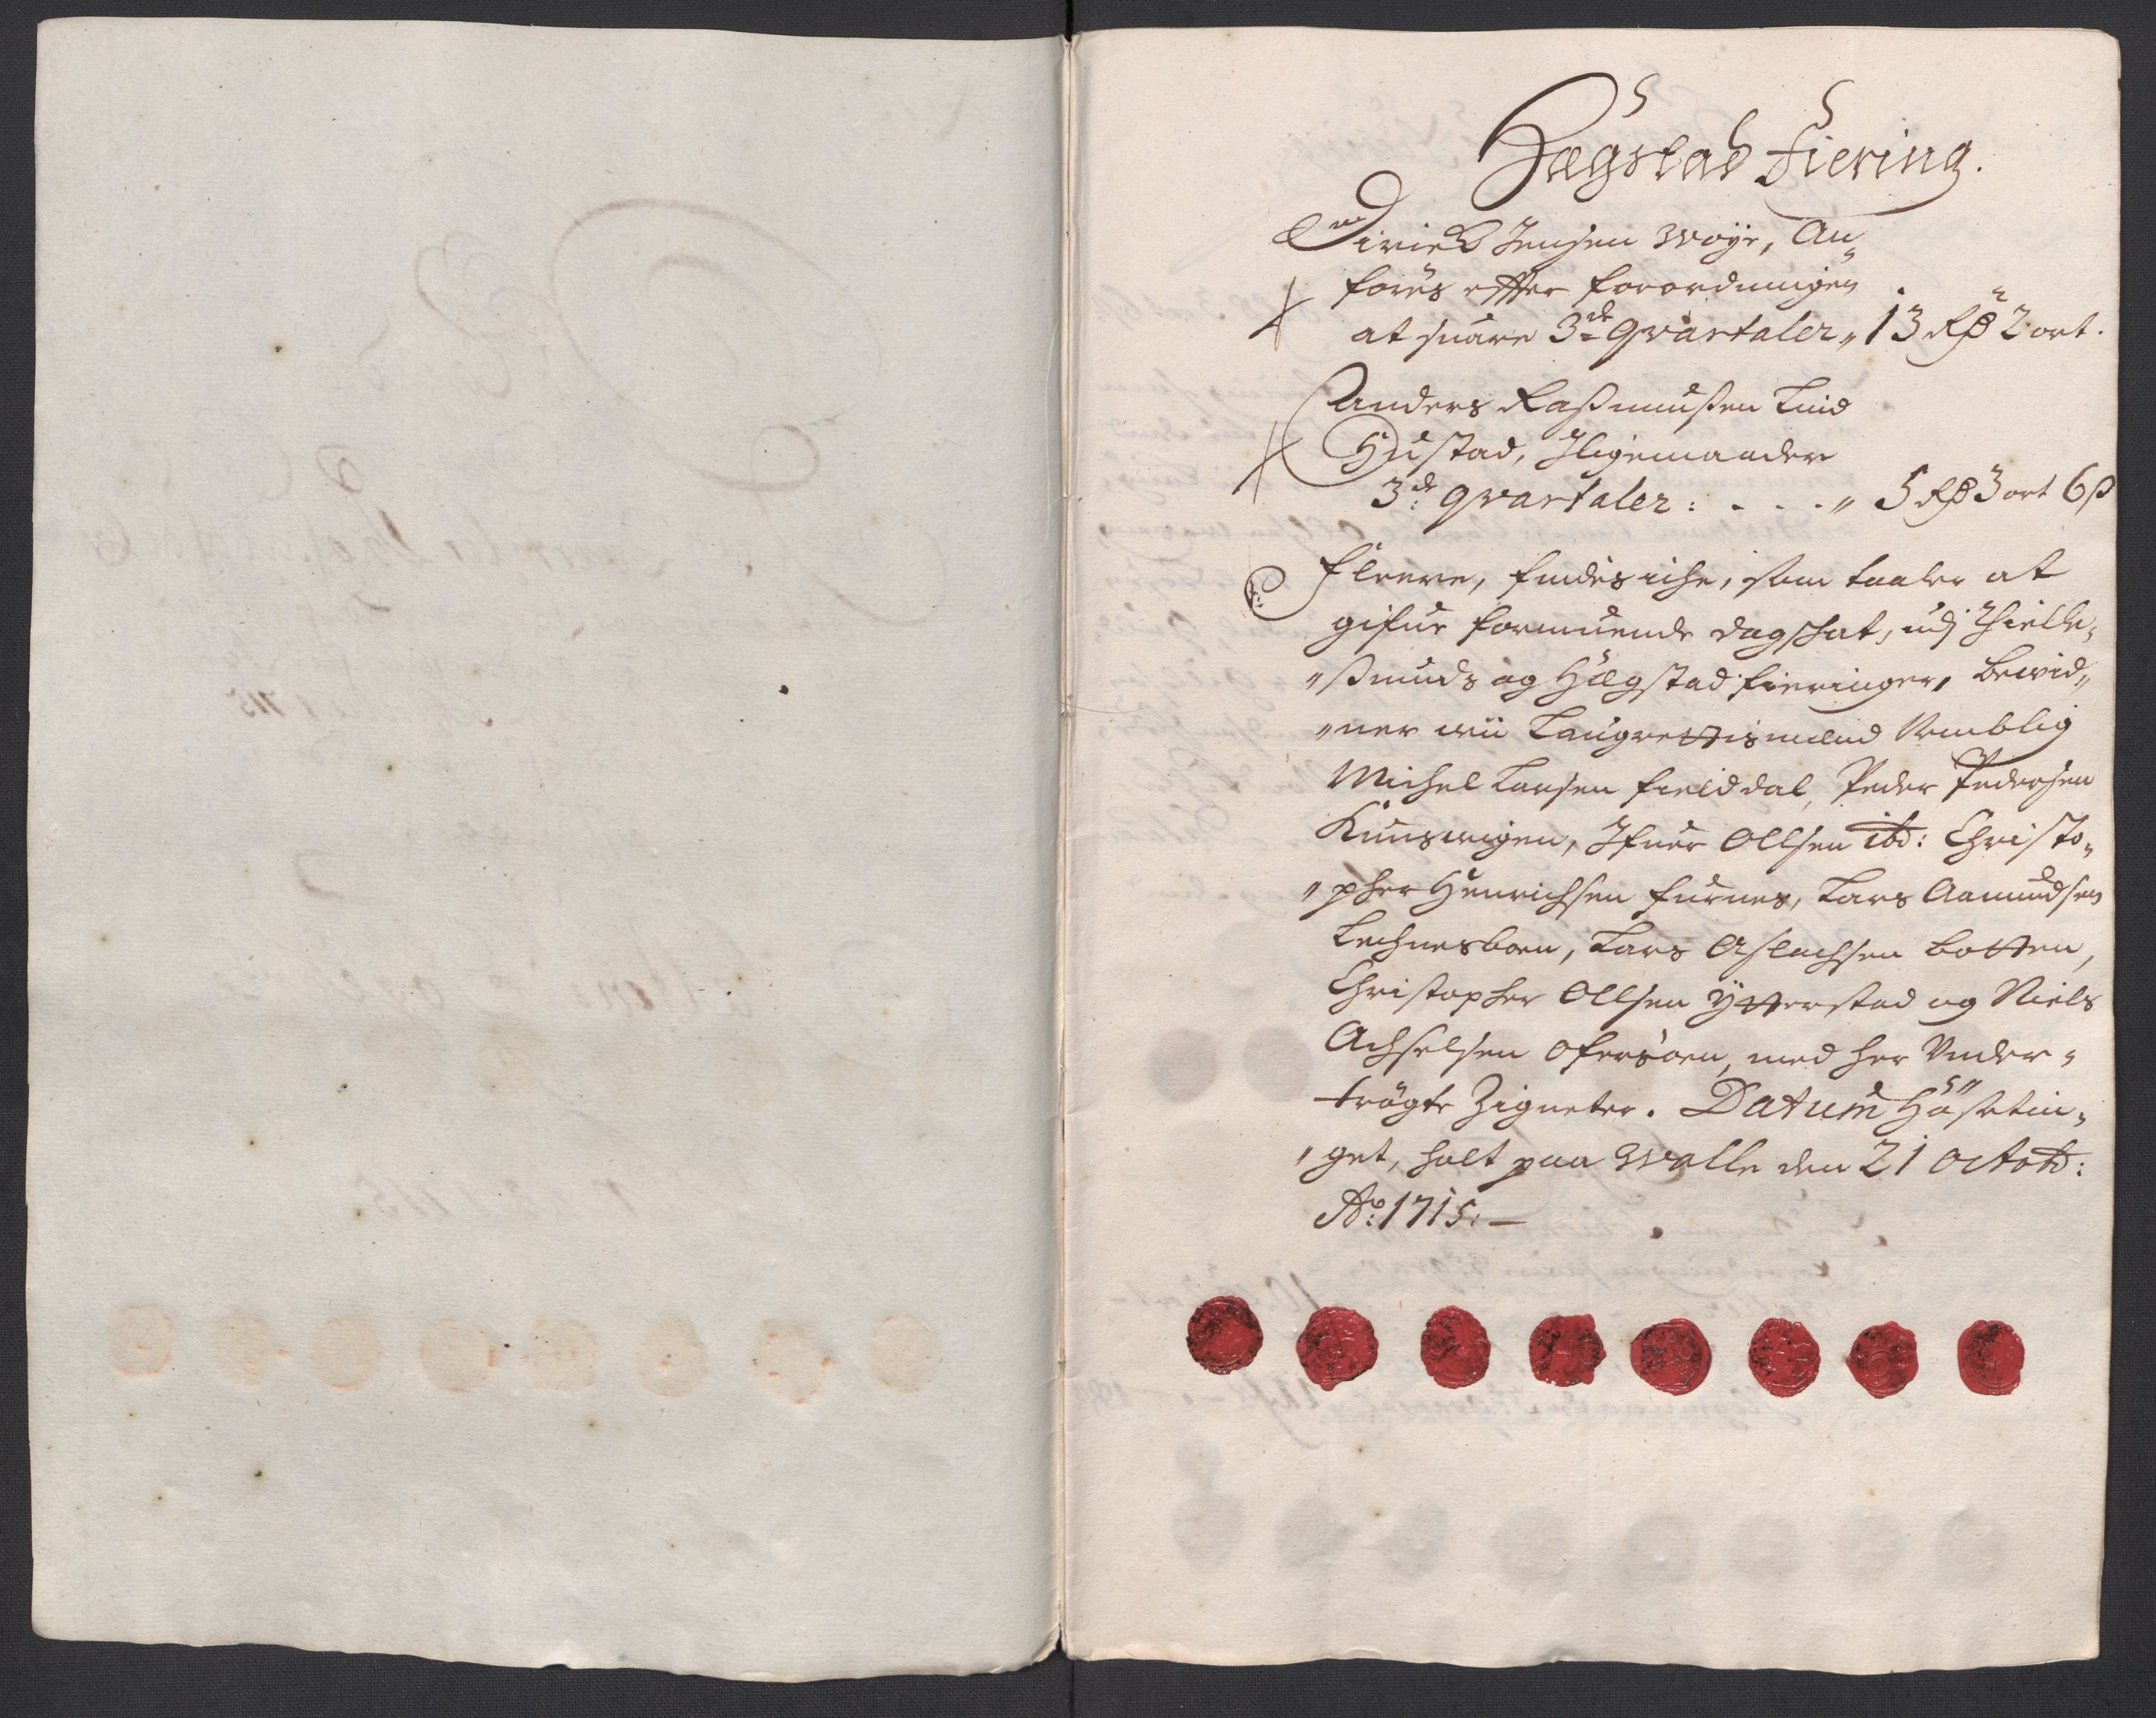 Hægstad Fiering.
Dirick Jensen Woÿe, An„
føris effter forordningen
at suare 3de Qvartaler „ 13 Rd 2 ort.
Anders Rasmusen Lund
Hustad, Iligemaader
3de qvartaler: - - - „ 5 Rd 3 ort 6 s
Fleere, findes iche, som taaler at
gifue formuende dagschat, udj Thielle„
„smunds og Hægstad fieringer, bewid„
„ner wii Laugrettismænd Nemblig
Michel Larsen fieiddal, Peder Pedersen
Kunswigen, Ifuer Ollsen ibd: Christo„
„pher Henrichsen furnes, Lars Aamundsen
Lechnesboen, Lars Aslachsen botten,
Christopher Ollsen Ÿtterstad og Niels
Achselsen Ofersøen, med her Under„
trøgte Zigneter. Datum Høsteting„
„get, holt paa Walle den 21 Octob:
Ao: 1715: —